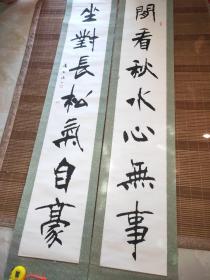 閒看秋水心無事
坐對長松氣自豪